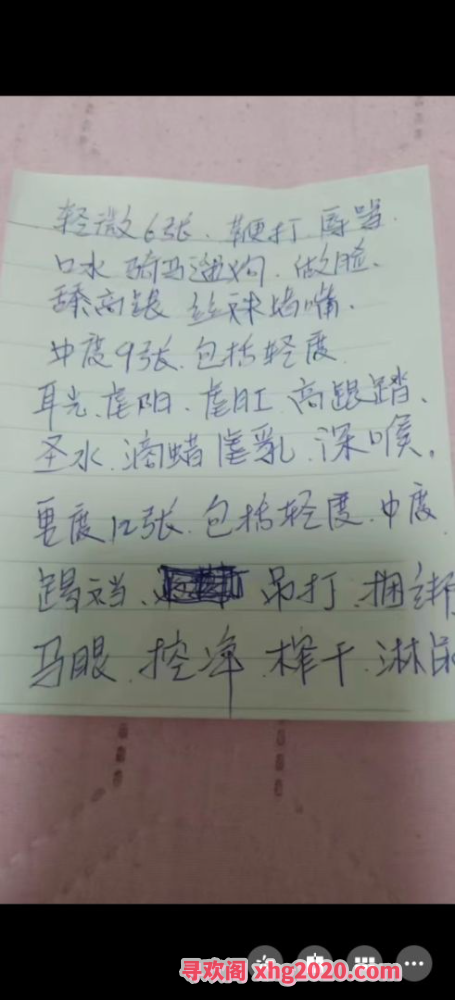 轻微6张、鞭打 辱骂、
口水 骑马遛狗、做脸、
舔高跟 丝袜堵嘴、
中度9张、包括轻度
耳光、虐阳、虐肛、高跟踏、
圣水、滴蜡 虐乳、深喉。
重度12张、包括轻度、中度
踢裆、吊打、捆绑
马眼、控净、榨干、淋尿
寻欢阁 xhg2020.com